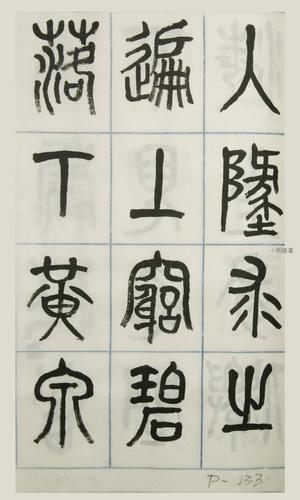 入地求之
遍上窮碧
落下黃泉
P-133